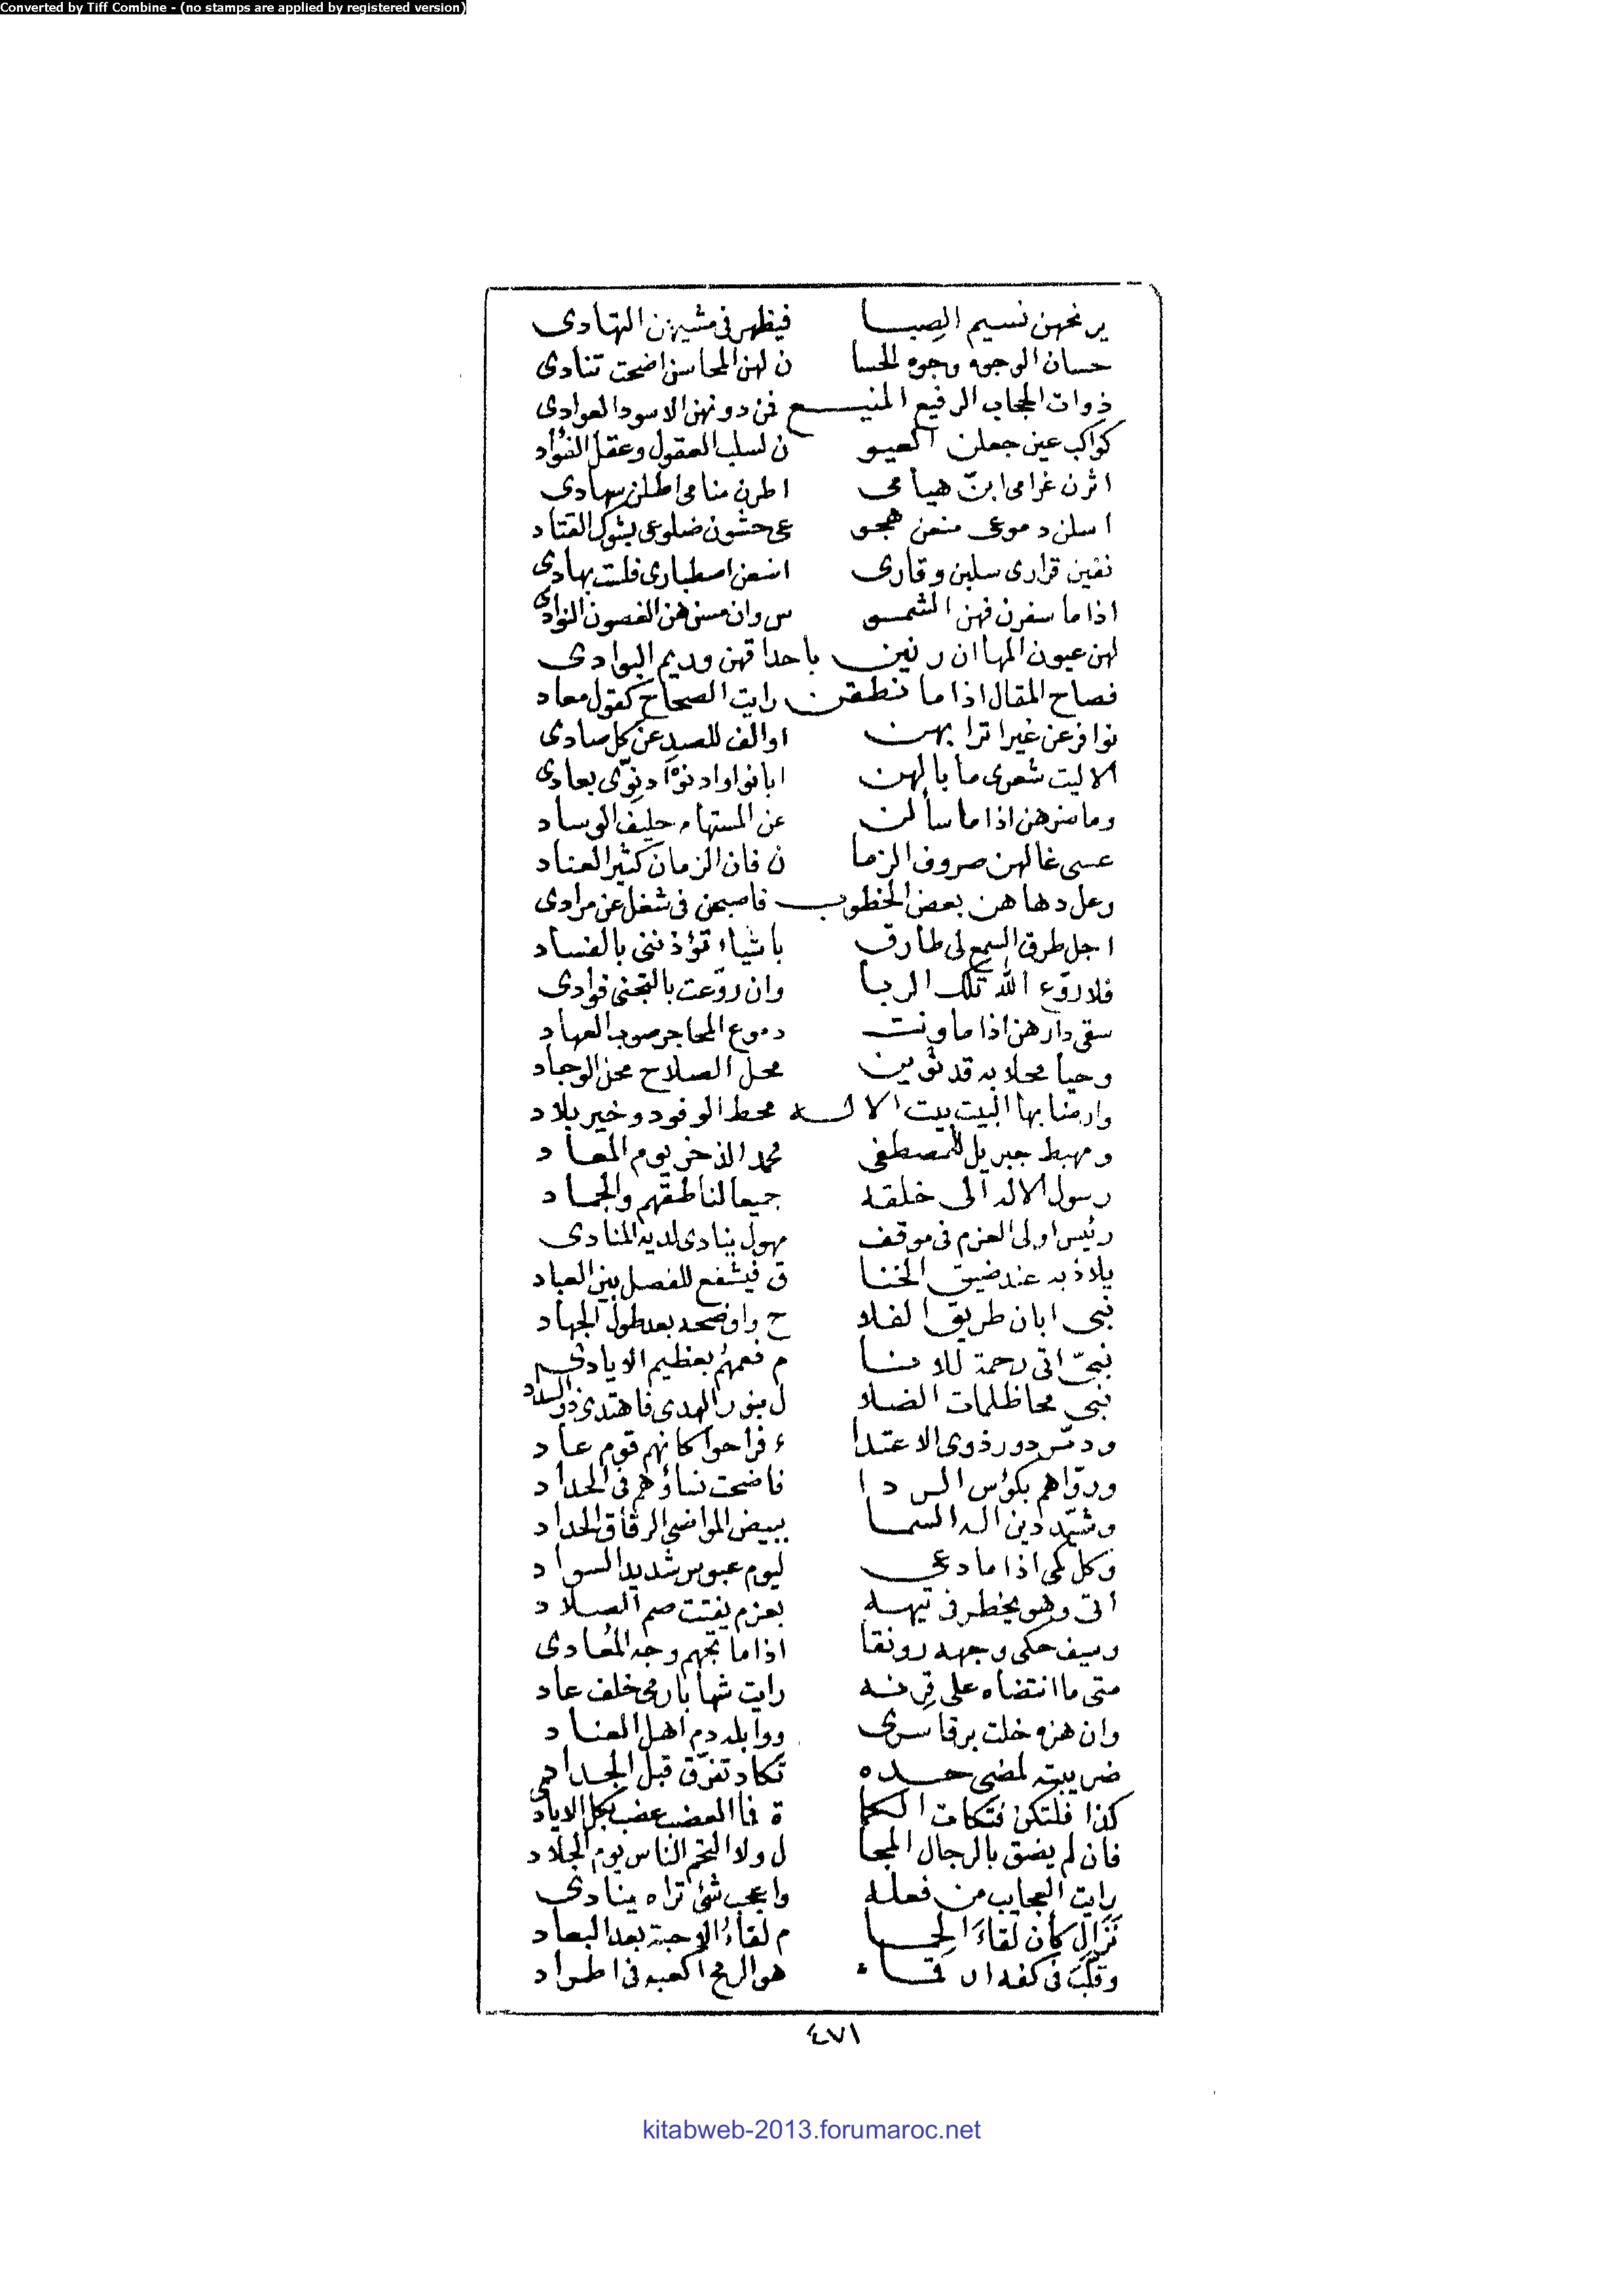 Converted by Tiff Combine - (no stamps are applied by registered version)
يرنحهن نسيم الصِبا فيظهر فى مشيهن التهادى
حسان الوجوه وجوه الحسا ن لهن المحاسن اضحت تنادى
ذوات الحجاب الرفيع المنيع فمن دونهن الاسود العوادى
كواكب عين جعلن العيو ن لسلب العقول وعقل الفؤاد
اثرن غرامى ابنّ هيامى اطرن منامى اطلن سهادى
اسلن دموعى منعن هجو عى حشون ضلوعى بشوك القتاد
نفين قرارى سلبن وقارى اضعن اصطبارى فلت بهادى
اذا ما سفرن فهن الشمو س وان مسن هن الغصون النوادى
لهن عيون المها ان رنين باحداقهن وريم البوادى
فصاح المقال اذا ما نطقن رايت الصحاح كقول معاد
نوافر عن غير اترابهن اوالف للصيد عن كل صادى
الا ليت شعرى ما بالهن ابانوا وادنوه ادنوّى بعادى
وما ضرهن اذا ما سألن عن المستهام حليف الوساد
عسى غالهن صروف الزما ن فان الزمان كثير العناد
وعل دهاهن بعض الخطوب فاصبحن فى شغل عن مرادى
اجل طرق السمع لى طارق باشياء تؤذننى بالفساد
فلا روّع الله تلك الربا وان روّعت بالتجنى فوادى
سقى دارهن اذا ما ونت دموع المحاجر صوب العهاد
وحيا محلا به قد ثوين محل الصلاح محل الوجاد
وارضا بها البيت بيت الاله محط الوفود وخير بلاد
ومهبط جبريل للمصطفى محمد الذخر يوم المعاد
رسول الاله الى خلقه جميعا لناطقهم والجماد
رئيس اولى العزم فى موقف مهول ينادى لديه المنادى
يلاذ به عند ضيق الخنا ق فيشفع للفصل بين العباد
نبى ابان طريق الفلا ح واوضحه بعد طول الجهاد
نبىّ اتى رحمة للانا م فعمهم بعظيم الايادى
نبى محا ظلمات الضلا ل بنور الهدى فاهتدى ذو السداد
ودمّر دور ذوى الاعتدا ء فراحوا كانهم قوم عاد
وروّاهم بكؤس الردا فاضحت نساؤهم فى الحداد
وشيّد دين اله السما ببيض المواضى الرقاق الحداد
وكل كمى اذا ما دعى ليوم عبوس شديد السواد
اتى وهو يخطر فى تيهه بعزم يفتت صم الصلاد
وسيف حكى وجهه رونقا اذا ما تجهم وجه المُعادى
متى ما انتضاه على قِرنه رايت شهابا رمى خلف عاد
وان هزه خلت برقا سرى ووابله دم اهل العناد
ضريبته لمضى حده تكاد تفرّق قبل الجداد
كذا فلتكن فتكات الكما ة فما العضب عضب بكل الايادى
فان لم يضق بالرجال المجا ل ولا التحم الناس يوم الجلاد
رايت العجايب من فعله واعجب شئ تراه ينادى
نَزَالِ كأن لقاءَ الحِما م لقاءُ الاحبة بعد البعاد
وقلّب فى كفه ارقاء هو الرمح اكعبه فى اطراد
٤٧١
kitabweb-2013.forumaroc.net